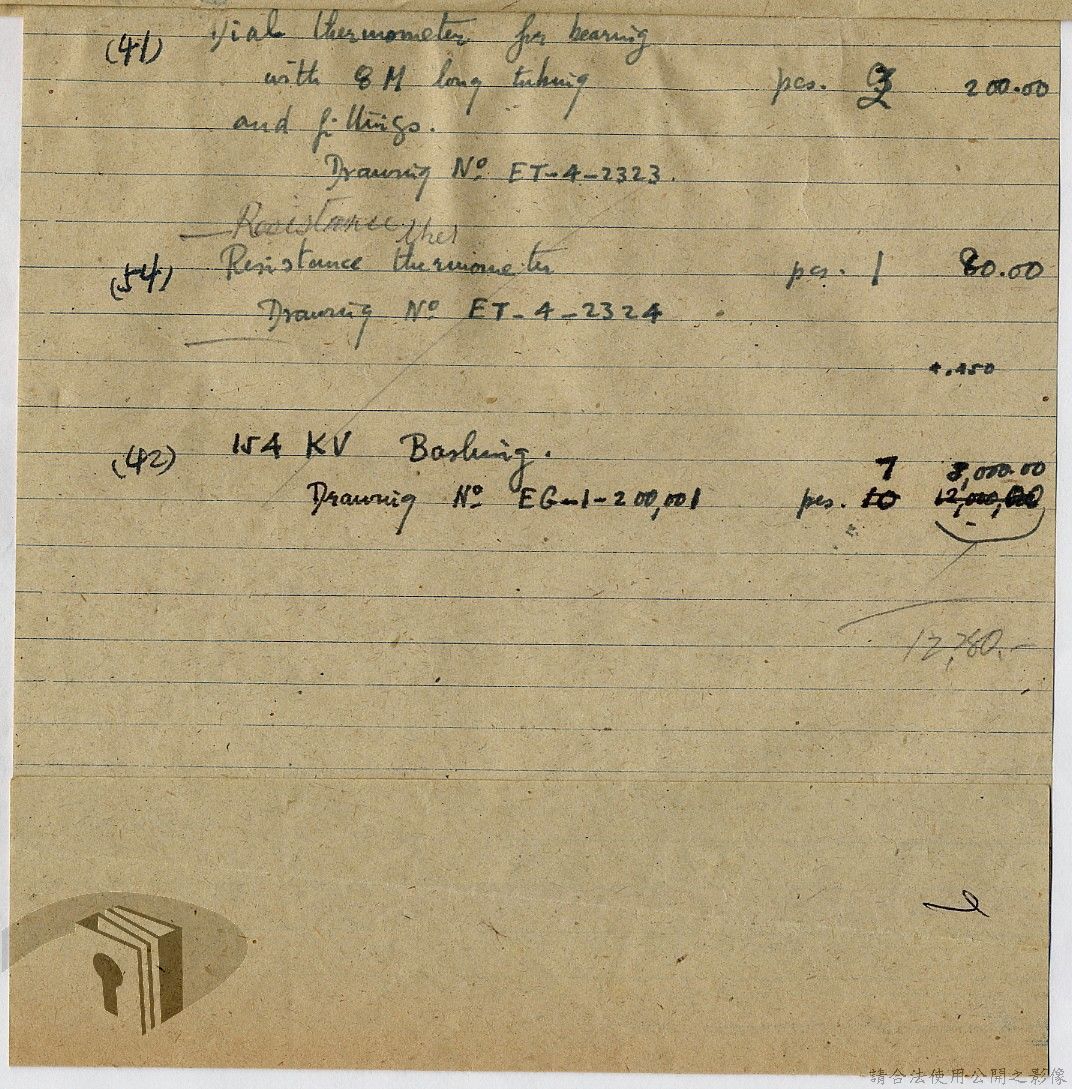 (41) Dial thermometer for bearing
with 8 M long tubing pcs. 200.00
and fittings.
Drawing Nº ET-4-2323.
Resistance ther
(54) Resistance thermometer pcs. 1 80.00
Drawing Nº ET-4-2324
(42) 154 KV Bushing.
7 8,000.00
Drawing Nº EG-1-200,001 pcs. 10 12,000,00
12,280.-
請合法使用公開之影像